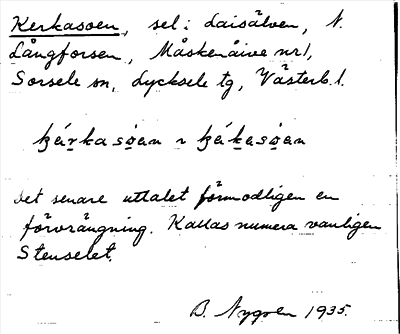 Kerkasoen, sel i Laisälven, N.
Långforsen, Måskenåive nr 1,
Sorsele sn, Lycksele tg, Västerb. l.
ƙérkasøan ~ ƙékasøan
Det senare uttalet förmodligen en
förvrängning. Kallas numera vanligen
Stenselet.
B. Nygren 1935.